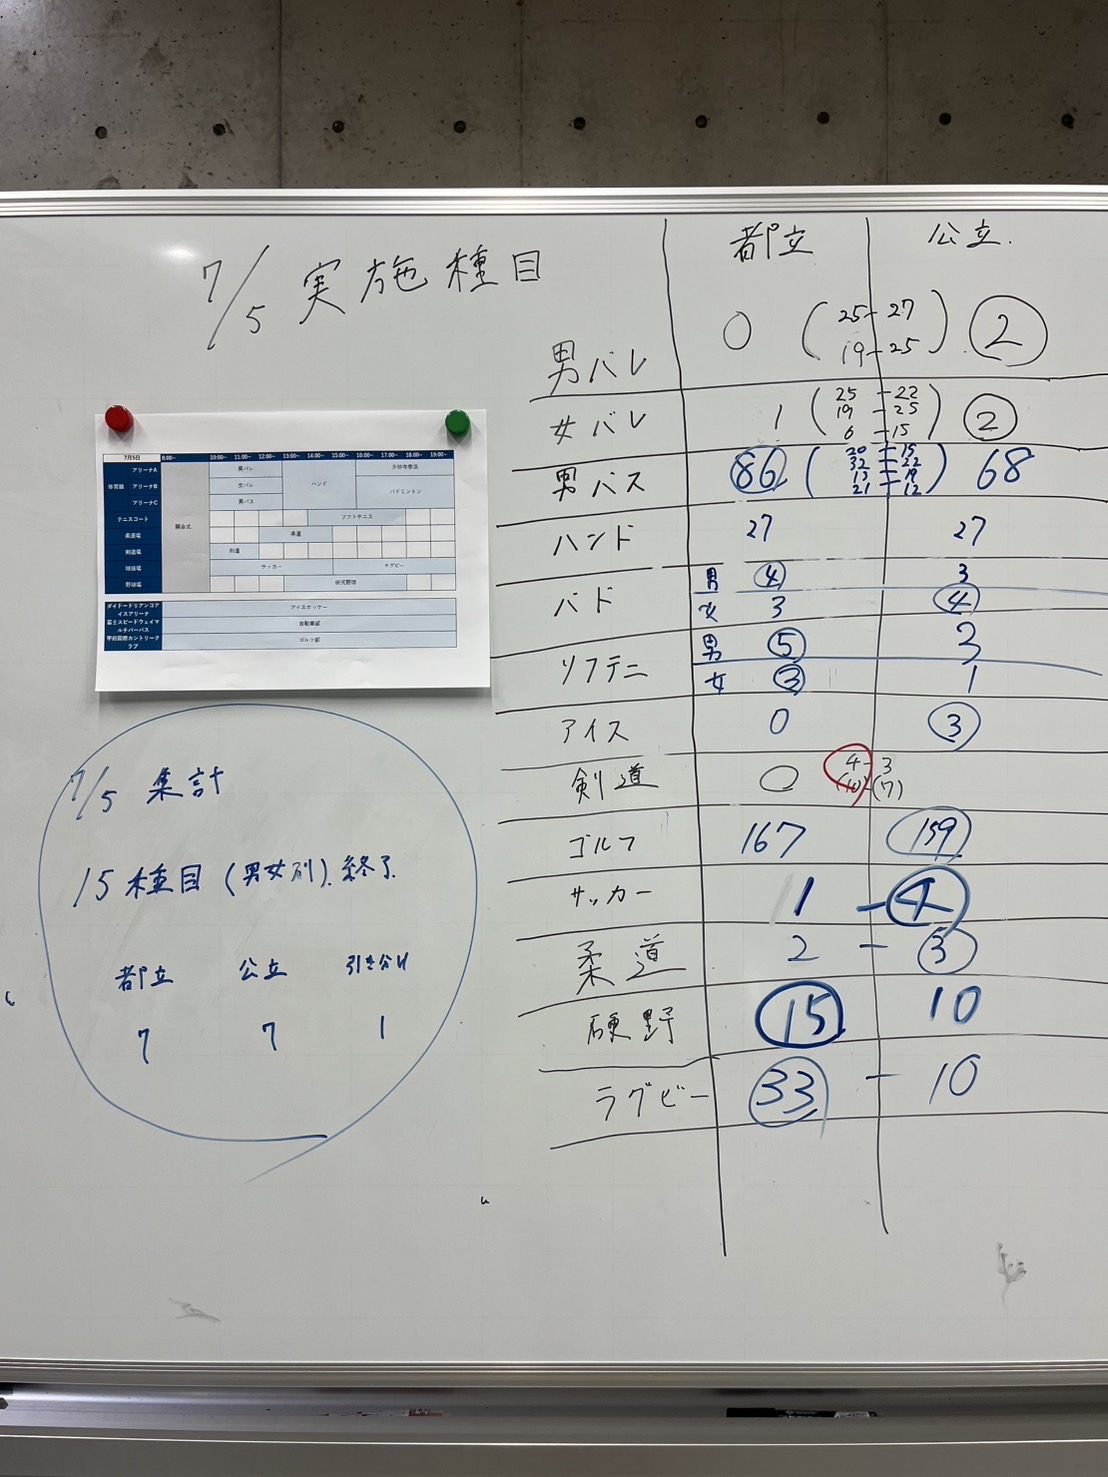 7/5 実施種目
都立 公立.
男バレ 0 (25-27 19-25) 2
女バレ 1 (25-22 19-25 6-15) 2
男バス 86 (20-15 32-22 13-19 21-12) 68
ハンド 27 27
バド 男 4 3
女 3 4
ソフテニ 男 5 3
女 3 1
アイス 0 3
剣道 ○ 4-3
(10)-(7)
ゴルフ 167 159
サッカー 1 - 4
柔道 2 - 3
硬野 15 10
ラグビー 33 - 10
7月5日 9:00~ 10:00~ 11:00~ 12:00~ 13:00~ 14:00~ 15:00~ 16:00~ 17:00~ 18:00~ 19:00~
体育館 アリーナA 男バレ 少林寺拳法
アリーナB 女バレ ハンド バドミントン
アリーナC 男バス
テニスコート 開会式 ソフトテニス
柔道場 柔道
剣道場 剣道
球技場 サッカー ラグビー
野球場 硬式野球
ダイドードリアンコアイスアリーナ アイスホッケー
富士スピードウェイマルチパーパス 自動車部
甲府国際カントリークラブ ゴルフ部
7/5 集計
15種目(男女別).終了.
都立 公立 引き分け
7 7 1